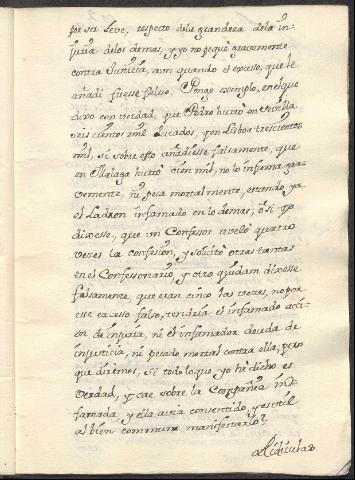 por ser leve, respecto de la grandeza de la in-
juria de los demas, y yo no pequè gravemente
contra Justicia, aun quando el excesso, que le
añadi fuesse falso. Pongo exemplo, en el que
dixo con verdad, que Pedro hurtò en Sevilla
seis cientos mil Ducados, y en Lisboa trescientos
mil, si sobre esto añadiesse falsamente, que
en Malaga hurtò cien mil, no lo infama gra-
vemente, ni peca mortalmente, estando ya
el Ladron infamado en lo demas; ò si yo
dixesse, que un Confessor revelò quatro
veces la confession, y solicitò otras tantas
en el Confessonario, y otro quidam dixesse
falsamente, que eran cinco las veces, no por
esse excesso falso, tendria el infamado acci-
on de injuria, ni el infamador deuda de
injusticia, ni pecado mortal contra ella; pero
que diremos, si todo lo que yo he dicho es
verdad, y cae sobre la Compañia in-
famada, y ella avia consentido, y es util
al bien comun su manifestarlo?
a Ridicular